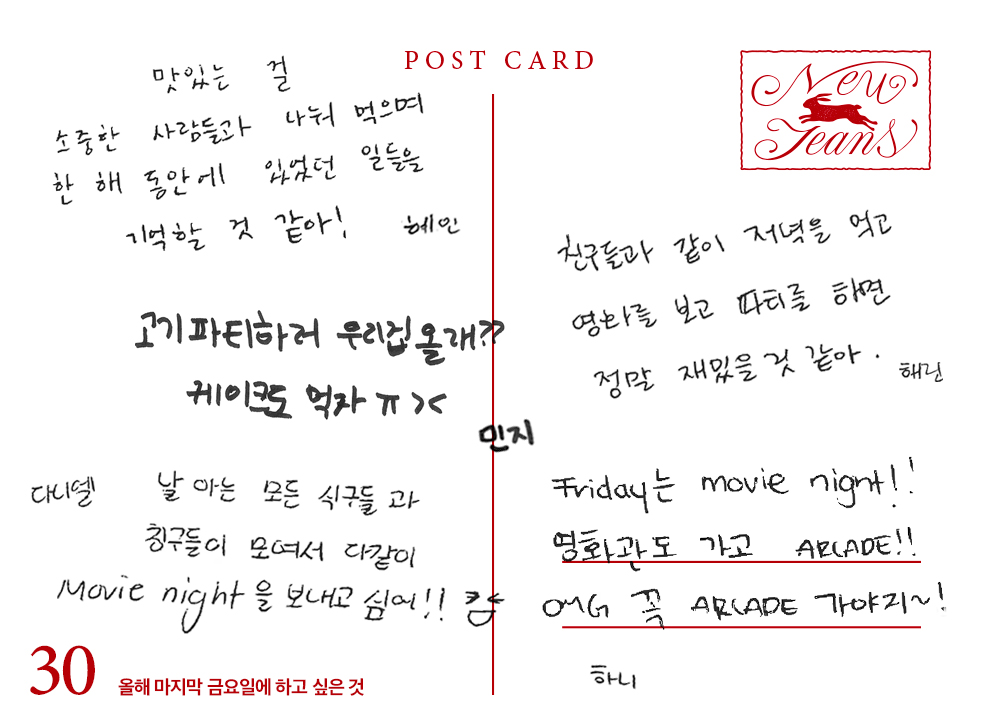 POST CARD
New
Jeans
맛있는 걸
소중한 사람들과 나눠 먹으며
한 해 동안에 있었던 일들을
기억할 것 같아! 혜인
고기파티하러 우리집올래??
케이크도 먹자 ㅠ ><
민지
다니엘 날 아는 모든 식구들 과
칭구들이 모여서 다같이
Movie night을 보내고 싶어!!
친구들과 같이 저녁을 먹고
영화를 보고 파티를 하면
정말 재밌을것 같아.
해린
Friday는 movie night!!
영화관도 가고 ARCADE!!
OMG 꼭 ARCADE 가야지~!
하니
30 올해 마지막 금요일에 하고 싶은 것